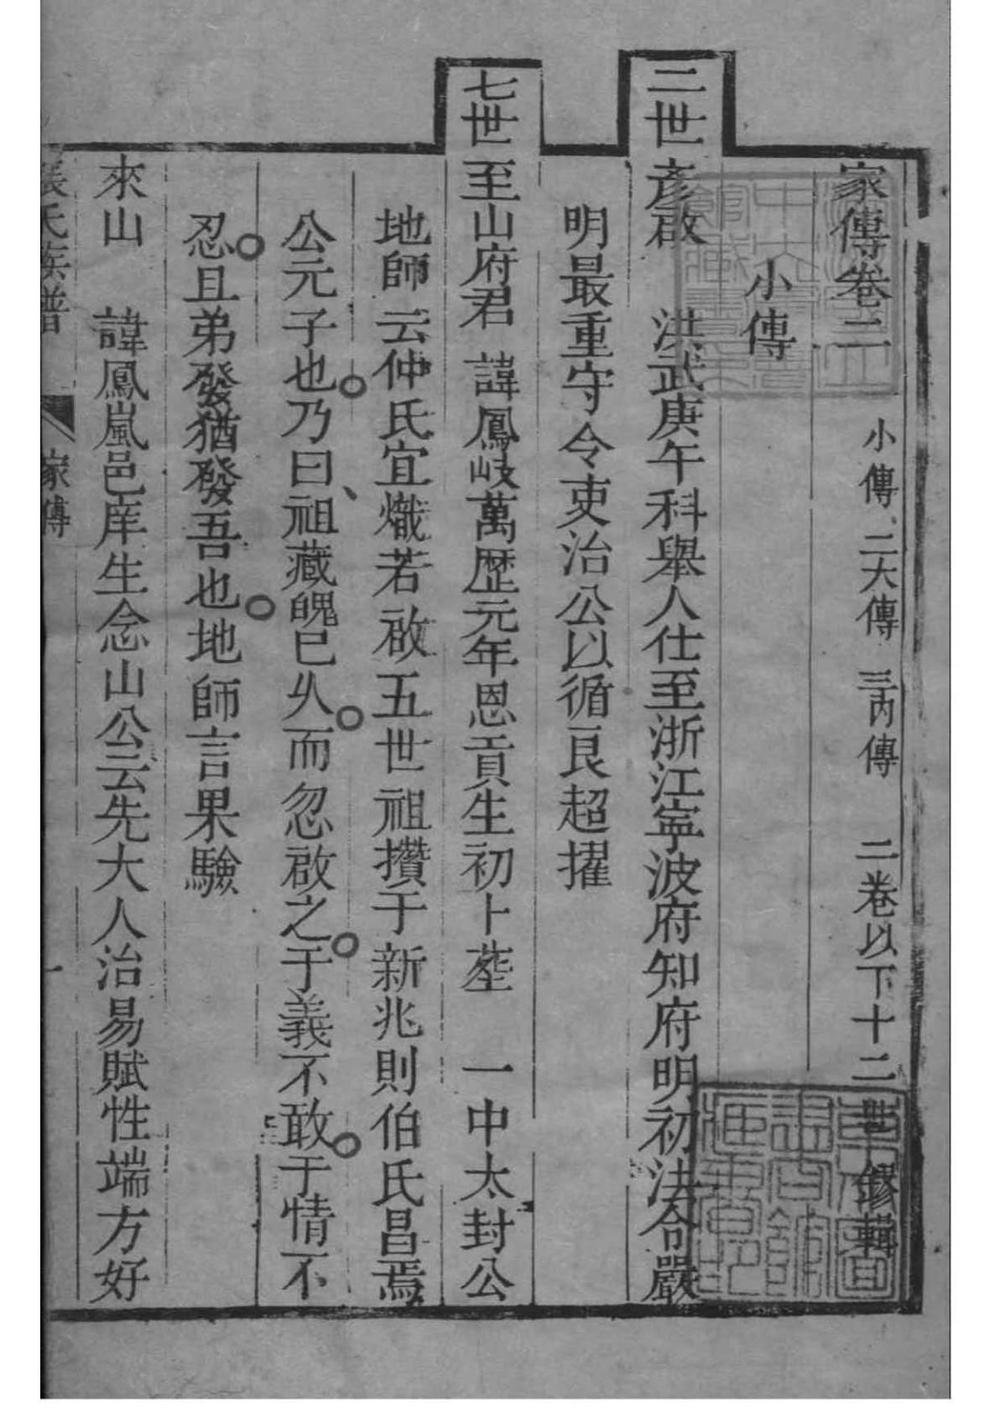 家傳卷二 小傳 二大傳 三內傳 二卷以下十二世 鏐輯
小傳
二世彥啟 洪武庚午科舉人仕至浙江寧波府知府明初法令嚴
明最重守令吏治公以循良超擢
七世至山府君 諱鳳岐萬歷元年恩貢生初卜塟 一中太封公
地師云仲氏宜熾若啟五世祖攢于新兆則伯氏昌焉
公元子也乃曰祖藏魄已久而忽啟之于義不敢于情不
忍且弟發猶發吾也地師言果驗
來山 諱鳳嵐邑庠生念山公云先大人治易賦性端方好
張氏族譜 家傳 一